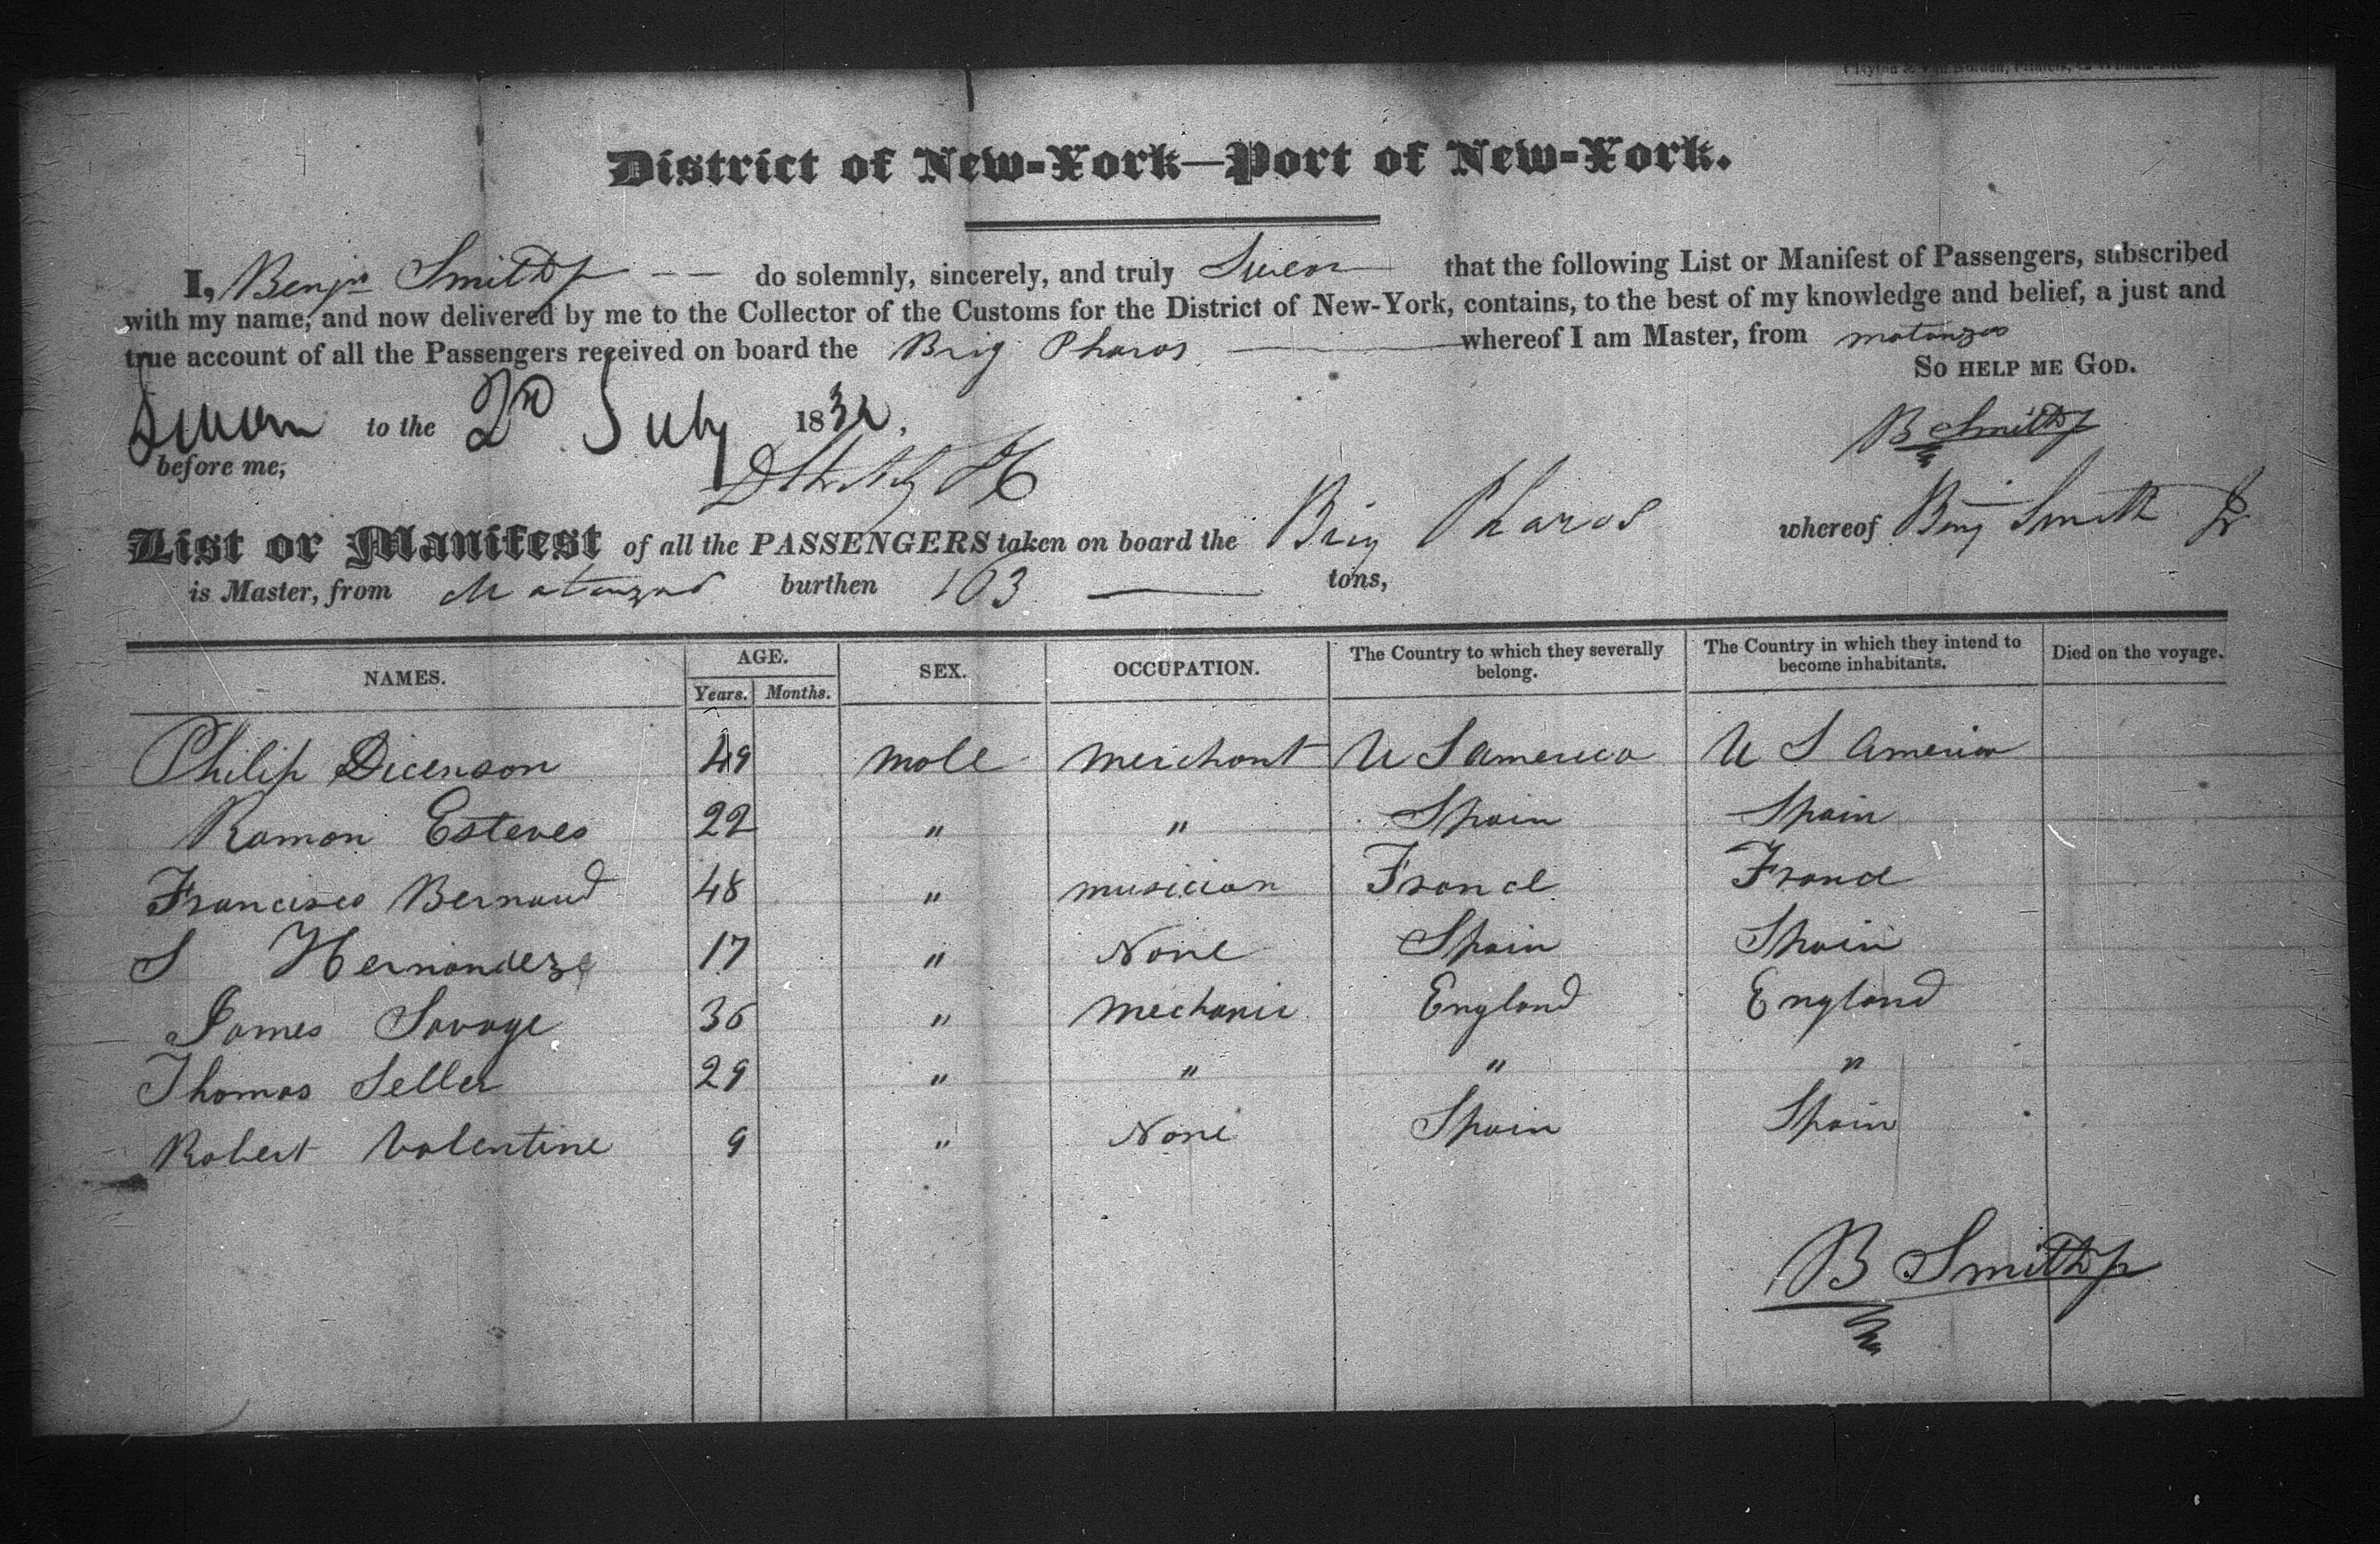 District of New-York—Port of New-York.
I, Benjn Smith Jr do solemnly, sincerely, and truly Swear that the following List or Manifest of Passengers, subscribed
with my name, and now delivered by me to the Collector of the Customs for the District of New-York, contains, to the best of my knowledge and belief, a just and
true account of all the Passengers received on board the Brig Pharos whereof I am Master, from matanzas
So help me God.
Sworn to the 2nd July 1832.
before me,
B Smith Jr
List or Manifest of all the PASSENGERS taken on board the Brig Pharos whereof Benj Smith Jr
is Master, from Matanzas burthen 103 tons,
NAMES. AGE. Years. Months. SEX. OCCUPATION. The Country to which they severally belong. The Country in which they intend to become inhabitants. Died on the voyage.
Philip Dicenson 49 male merchant U S america U S america
Ramon Esteves 22 " " Spain Spain
Francisco Bernaud 48 " musician France France
S Hernandeze 17 " None Spain Spain
James Savage 36 " mechanic England England
Thomas Seller 29 " " " "
Robert Valentine 9 " None Spain Spain
B Smith Jr